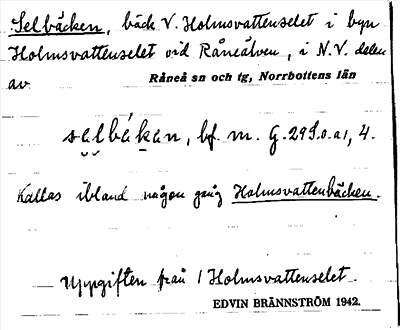 Selbäcken, bäck V. Holmsvattenselet i byn
Holmsvattenselet vid Råneälven, i N.V. delen
av Råneå sn och tg, Norrbottens län
sęlbákạn, bf. m. G. 29 S.o.a1, 4.
Kallas ibland någon gång Holmsvattenbäcken.
Uppgiften från 1 Holmsvattenselet.
EDVIN BRÄNNSTRÖM 1942.